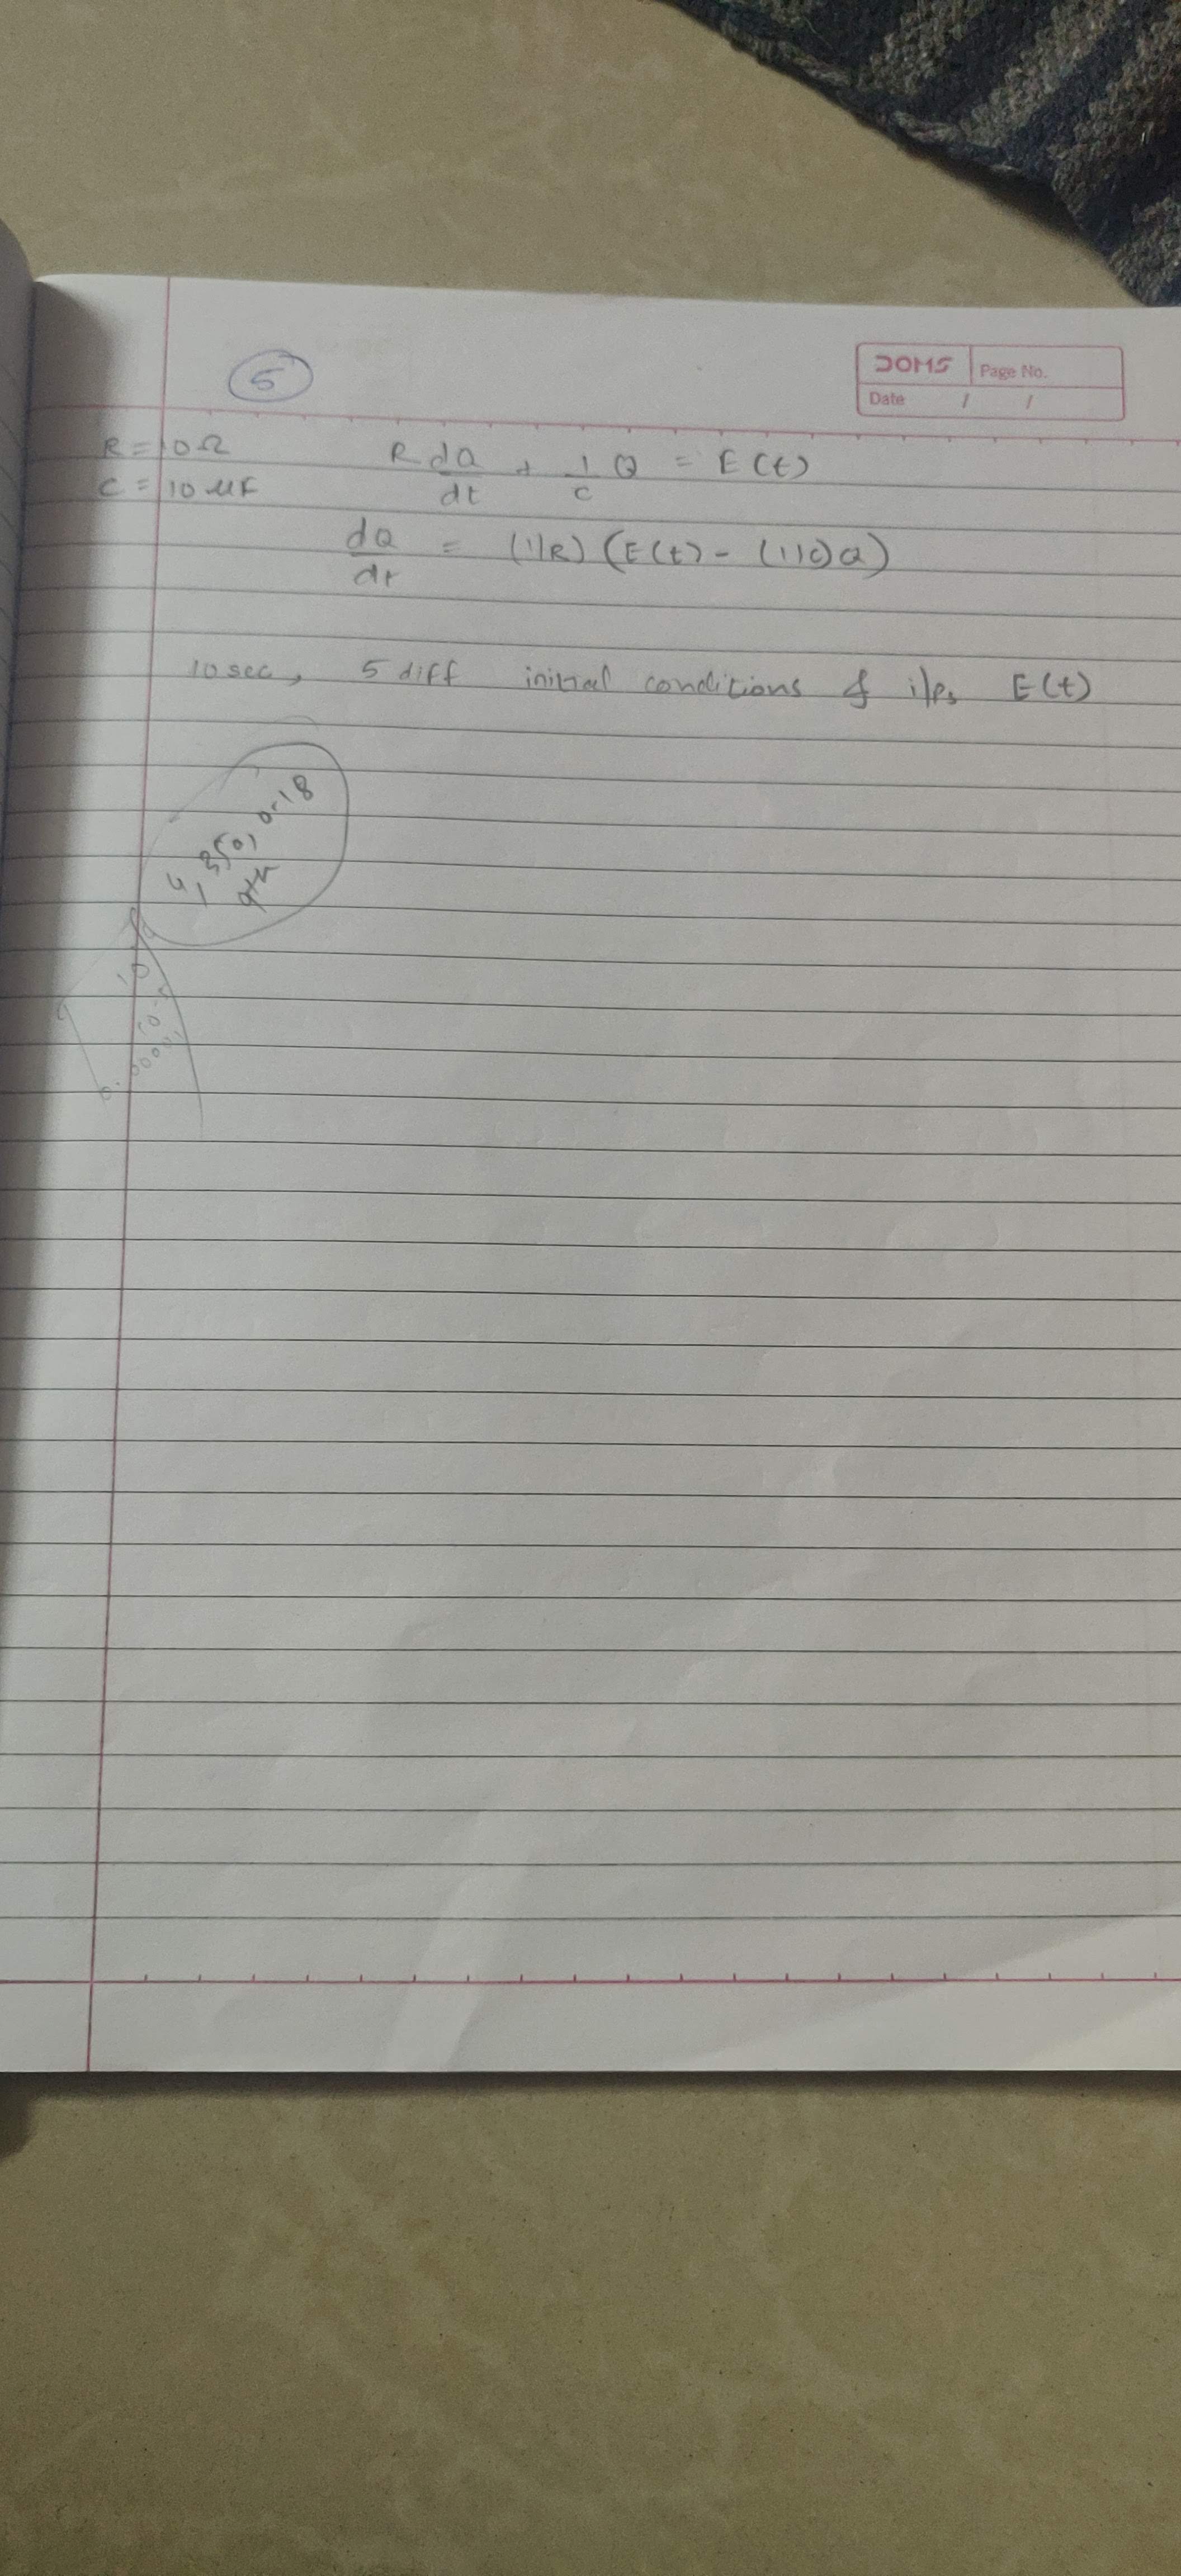 5
DOMS Page No.
Date / /
R = 10Ω
C = 10 μF
R dQ/dt + 1/C Q = E(t)
dQ/dt = (1/R) (E(t) - (1/C)Q)
10 sec, 5 diff initial conditions & i/ps E(t)
350, 0.18
10